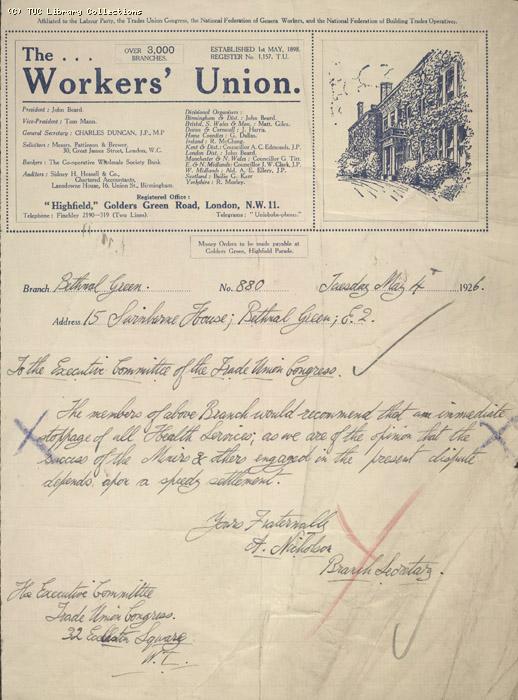 (C) TUC Library Collections
Affiliated to the Labour Party, the Trades Union Congress, the National Federation of General Workers, and the National Federation of Building Trades Operatives.
The . . .
OVER 3,000 BRANCHES.
ESTABLISHED 1st MAY, 1898.
REGISTER No. 1,157. T.U.
Workers' Union.
President : John Beard.
Vice-President : Tom Mann.
General Secretary : CHARLES DUNCAN, J.P., M.P
Solicitors : Messrs. Pattinson & Brewer,
30, Great James Street, London, W.C.
Bankers : The Co-operative Wholesale Society Bank
Auditors : Sidney H. Hassell & Co.,
Chartered Accountants,
Lansdowne House, 16, Union St., Birmingham.
Divisional Organisers :
Birmingham & Dist. : John Beard.
Bristol, S. Wales & Mon. : Matt. Giles.
Devon & Cornwall : J. Harris.
Home Counties : G. Dallas.
Ireland : R. McClung.
Kent & Dist. : Councillor A. C. Edmonds, J.P.
London Dist. : John Beard.
Manchester & N. Wales : Councillor G. Titt.
E. & N. Midlands: Councillor J. W. Clark, J.P.
W. Midlands : Ald. A. E. Ellery, J.P.
Scotland : Bailie G. Kerr
Yorkshire : R. Morley.
Registered Office :
"Highfield," Golders Green Road, London, N.W.11.
Telephone : Finchley 2190—319 (Two Lines).
Telegrams : "Uniobobe-phone."
Money Orders to be made payable at
Golders Green, Highfield Parade.
Branch Bethnal Green. No. 880 Tuesday May 4th 1926.
Address 15 Swinburne House; Bethnal Green; E.2.
To the Executive Committee of the Trade Union Congress.
The members of above Branch would recommend that an immediate
stoppage of all Health Services; as we are of the opinion that the
success of the Miners & others engaged in the present dispute
depends upon a speedy settlement.
Yours Fraternally
A. Nicholson
Branch Secretary.
The Executive Committee
Trade Union Congress.
32 Eccleston Square
W.I.